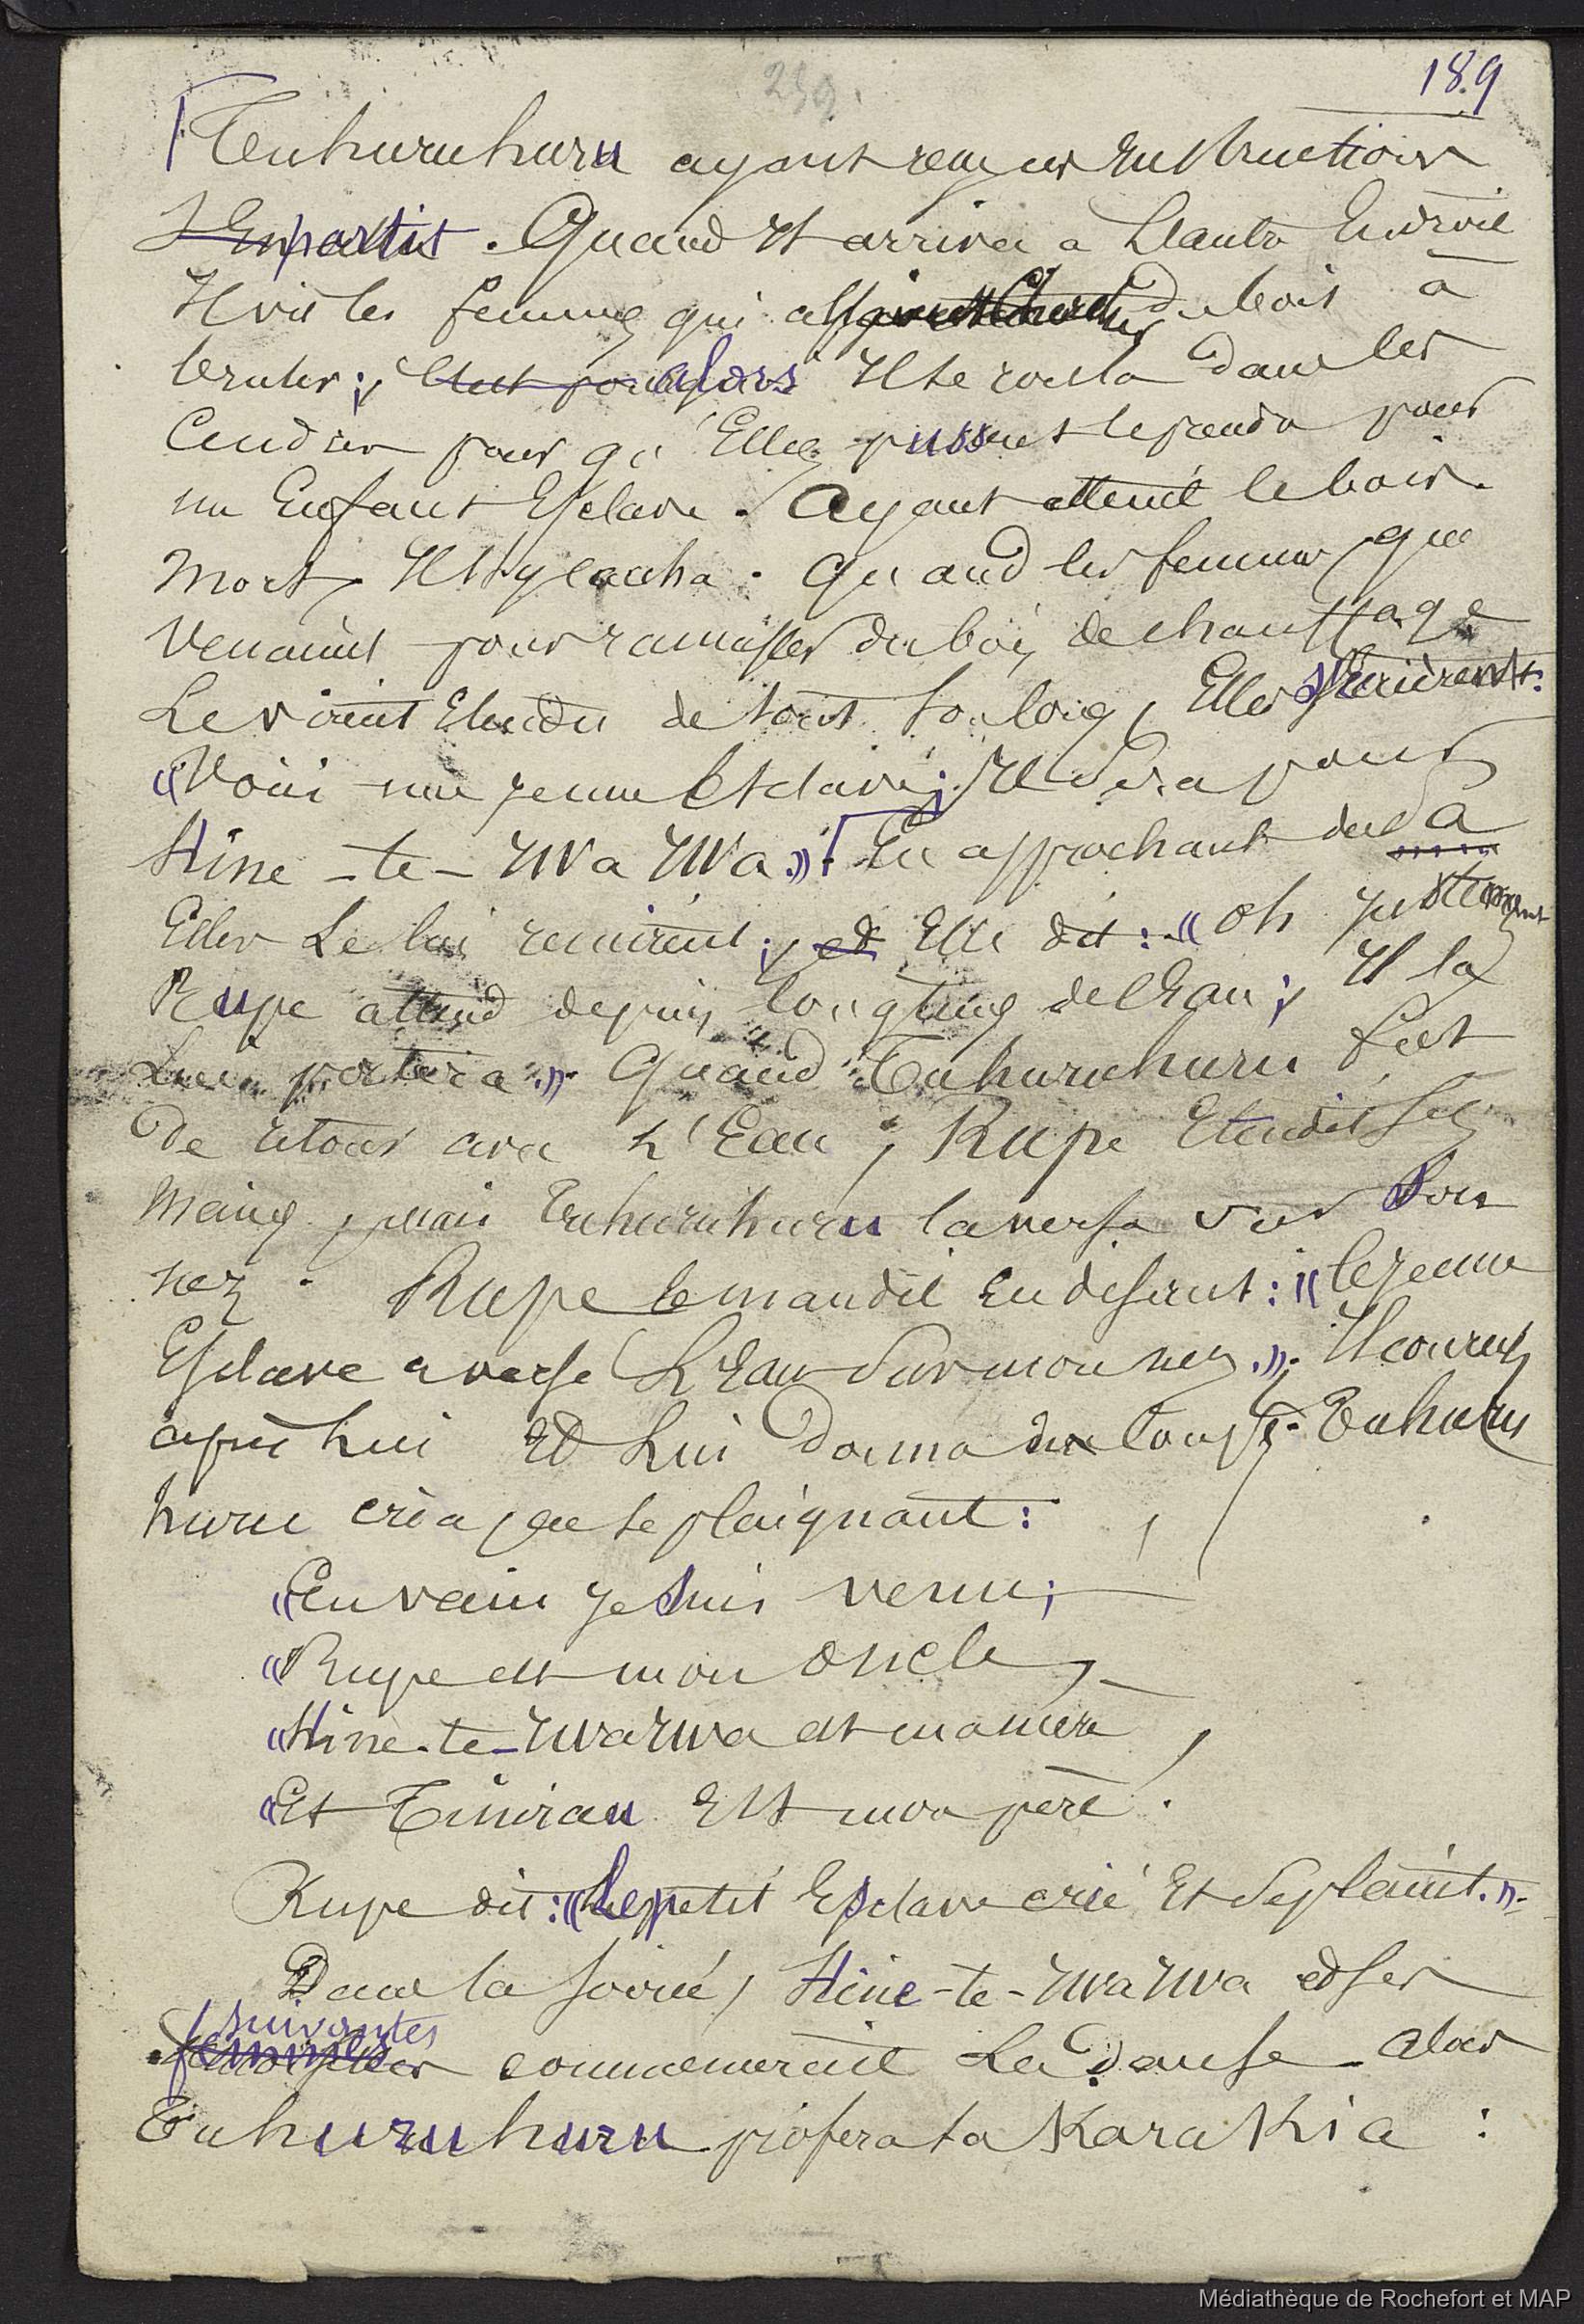 239.
189
Tuhuruhuru ayant reçu ces Instructions
s'En partit. Quand Il arriva à L'autre Endroit
Il vit les femmes qui chercher du bois à
bruler; alors Il se roula dans les
Cendres pour qu'Elles pussent le prendre pour
un Enfant Esclave. Ayant atteint le bois
mort, Il s'y coucha. Quand les femmes, qui
Venaient pour ramasser du bois de chauffage
Le virent Etendu de tout son long, Elles s'écrièrent:
« Voici un jeune Esclave; Il sera pour
Hine-te-Iwa Iwa.». En approchant de
Elles Le lui remirent; et Elle dit: « Oh justement
Rupe attend depuis longtemps de l'Eau; Il la
Lui portera.». Quand Tuhuruhuru fut
De retour avec L'Eau, Rupe Etendit ses
Mains, mais Tuhuruhuru la versa sur Son
nez. Rupe le maudit En disant: « Ce jeune
Esclave a versé L'Eau Sur mon nez.». Il courut
après Lui Et Lui Donna des coups. Tuhuru
huru cria, en se plaignant:
« En vain je suis venu;
« Rupe est mon oncle,
« Hine-te-Iwa Iwa est ma mère,
« Et Tinirau Est mon père.
Rupe dit: « Le petit Esclave crie Et Se plaint.».
Dans la soirée, Hine-te-Iwa Iwa et ses
suivantes
femmes commencèrent La danse. Alors
Tuhuruhuru proféra ta Karakia:
Médiathèque de Rochefort et MAP